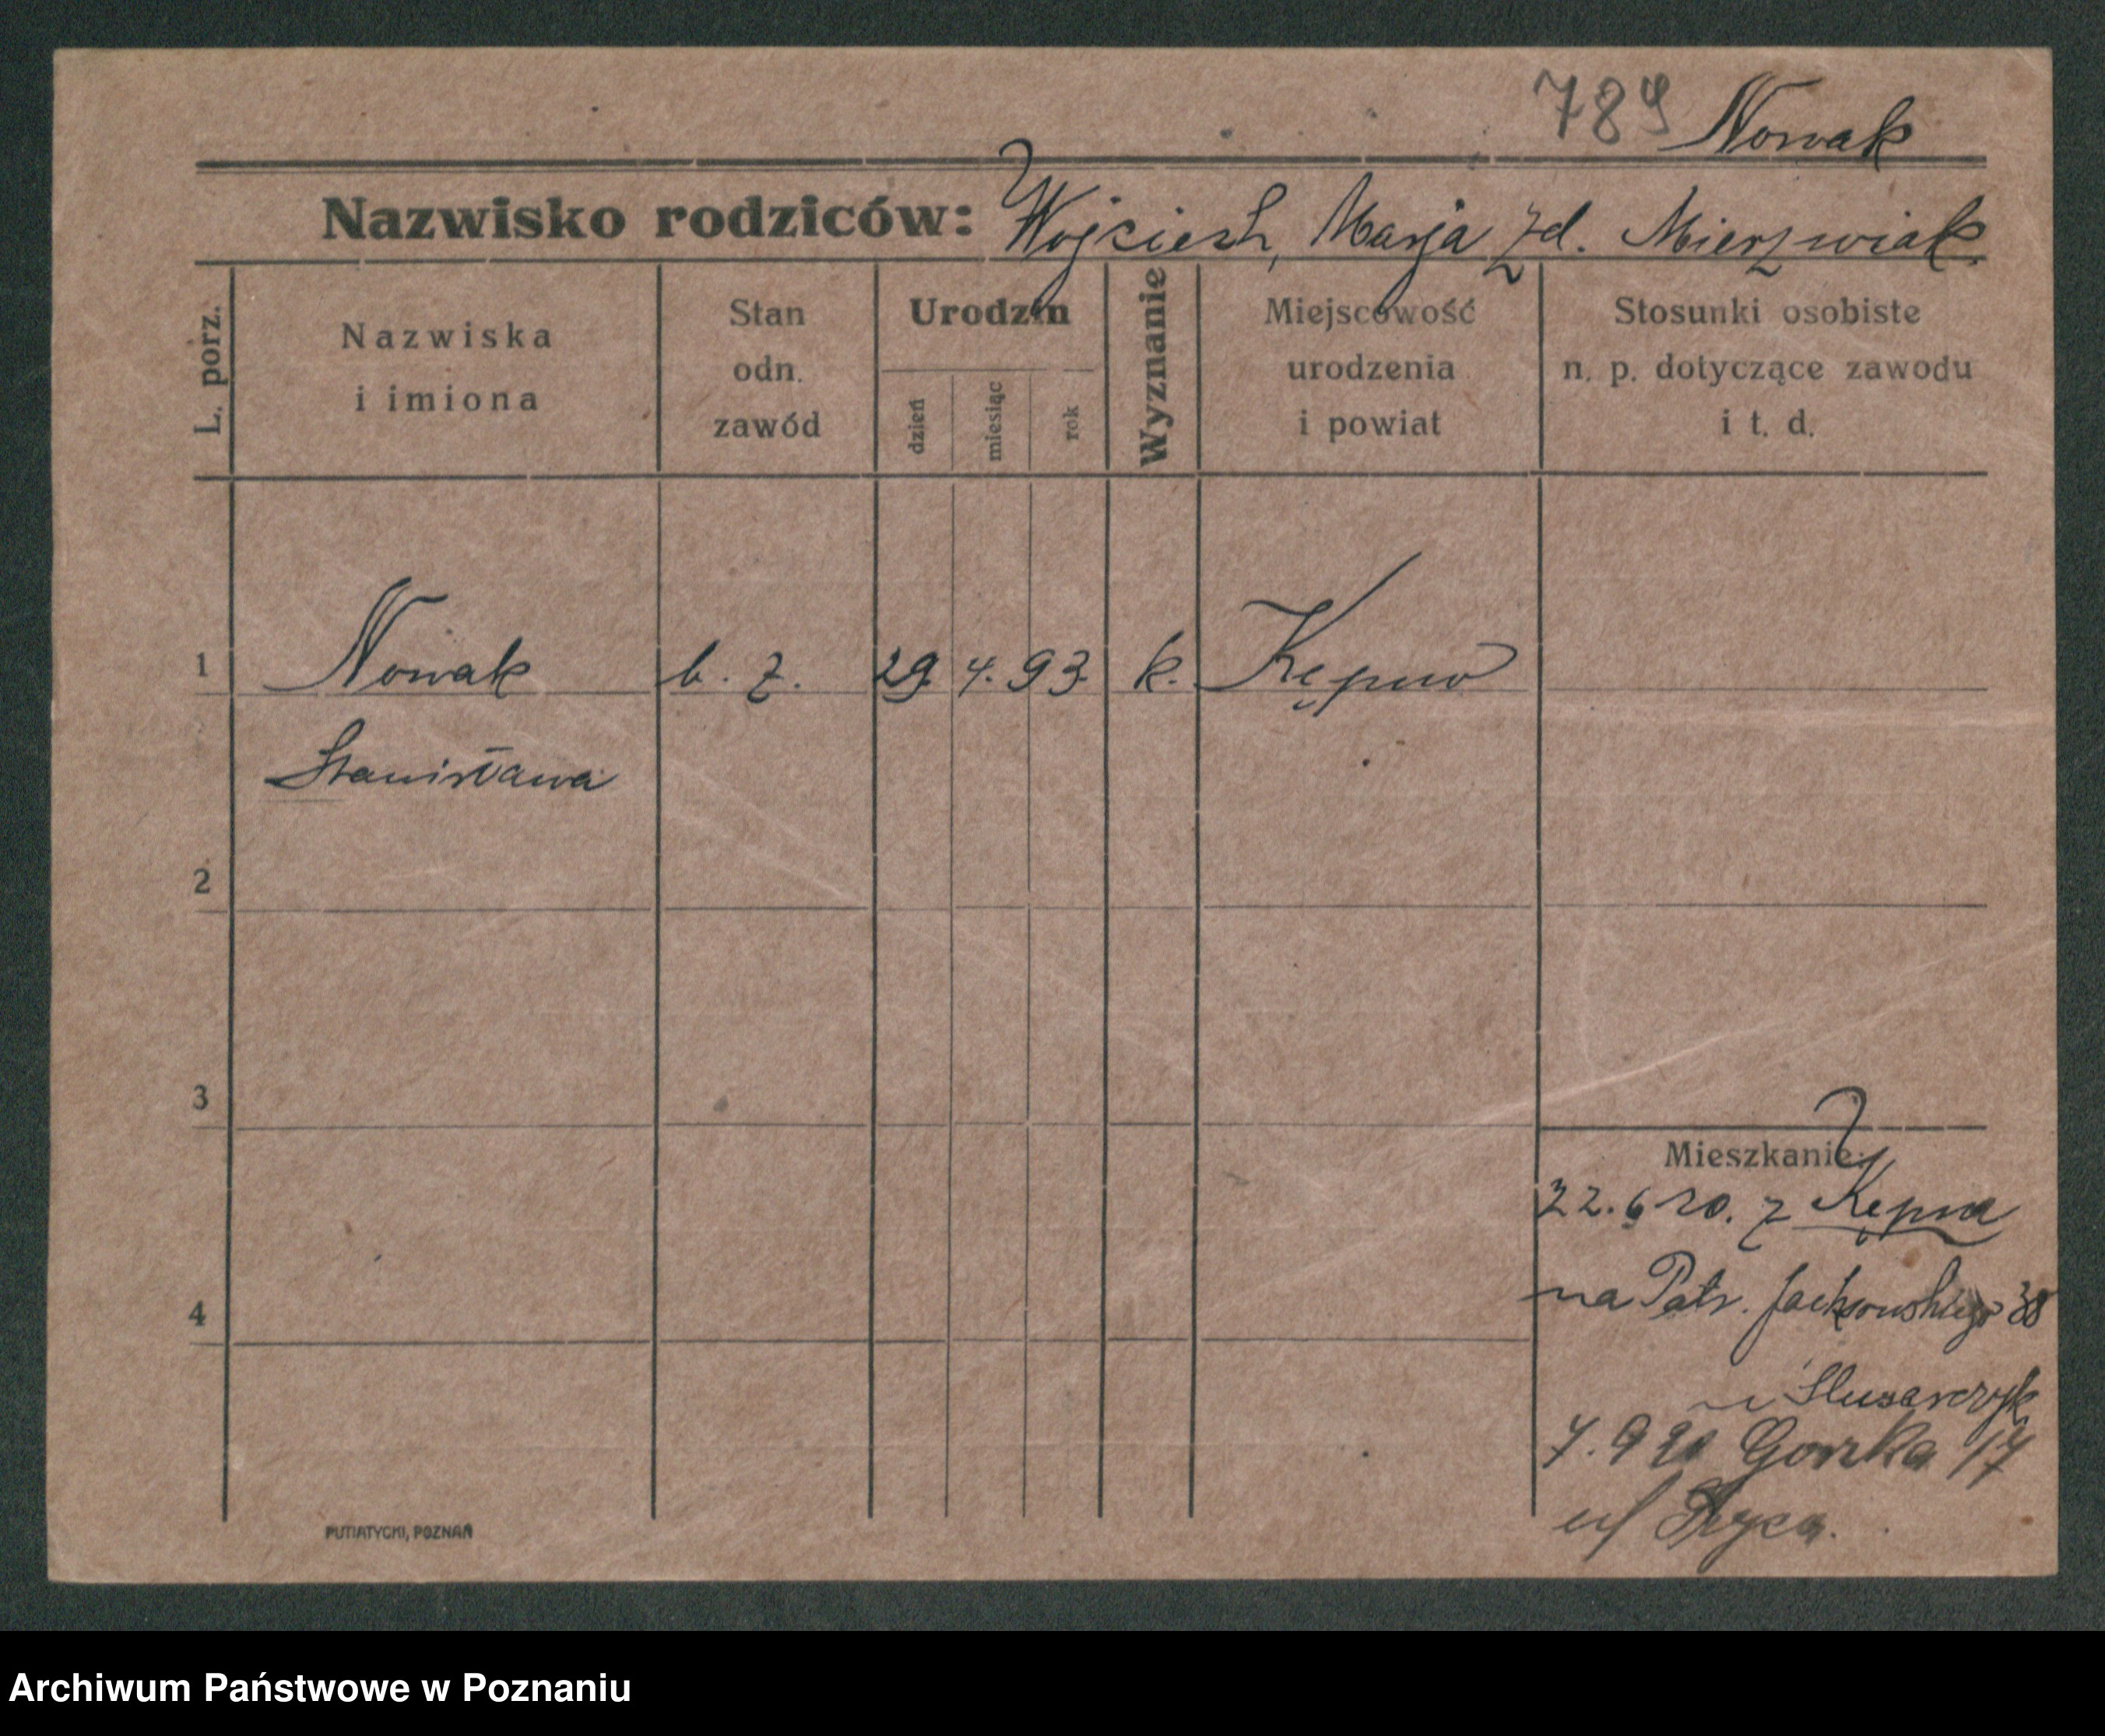 789 Nowak
Nazwisko rodziców: Wojciech, Marja zd. Mierzwiak
L. porz.
Nazwiska
i imiona
Stan
odn.
zawód
Urodzin
dzień
miesiąc
rok
Wyznanie
Miejscowość
urodzenia
i powiat
Stosunki osobiste
n. p. dotyczące zawodu
i t. d.
1 Nowak b. z. 29. 4. 93. k. Kępno
Stanisława
2
3
4
Mieszkanie:
22.6 20. z Kępna
na Patr. Jackowskiego 38
u Slusarczyk
7. 9 20 Gorzka 17
u/
PUTIATYCKI, POZNAŃ
Archiwum Państwowe w Poznaniu